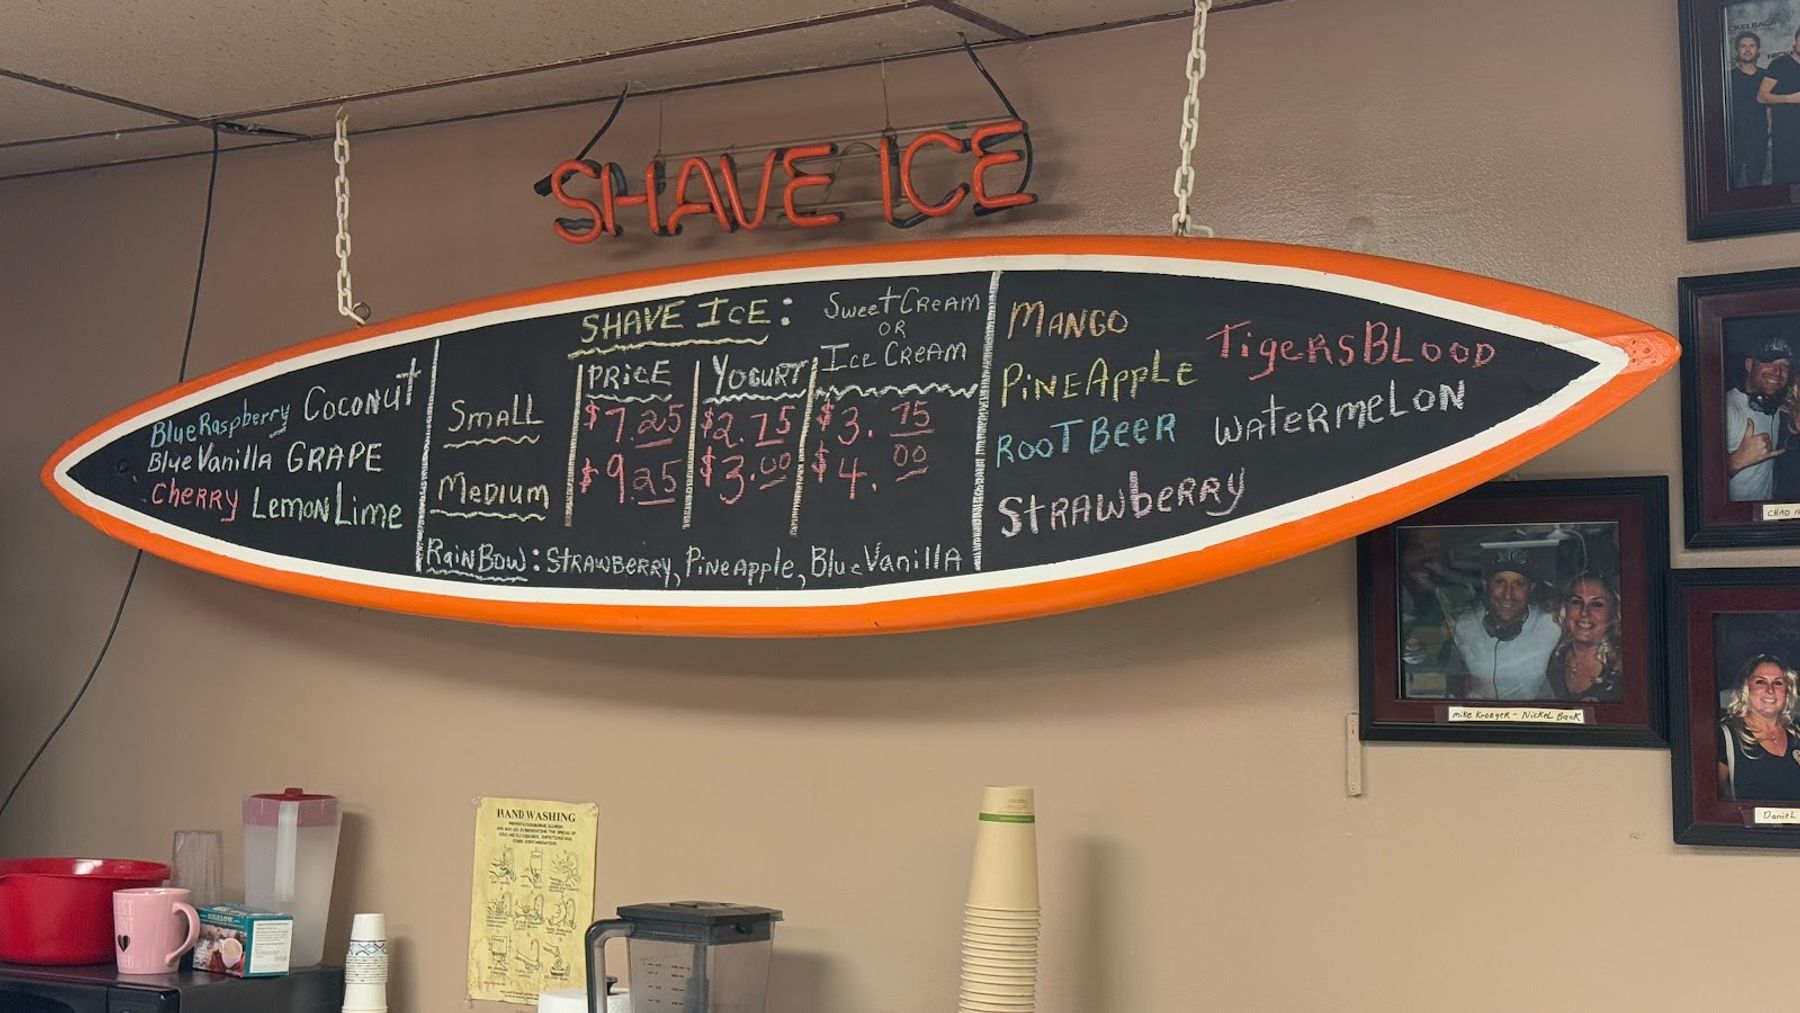 SHAVE ICE
SHAVE ICE:
Sweet CREAM
OR
ICE CREAM
PRICE YOGURT
SMALL $7.25 $2.75 $3.75
MEDIUM $9.25 $3.00 $4.00
RAINBOW: STRAWBERRY, PINEAPPLE, BLUE VANILLA
Blue Raspberry COCONUT
Blue Vanilla GRAPE
CHERRY LEMON LIME
MANGO
PINEAPPLE
ROOT BEER
STRAWBERRY
TIGERS BLOOD
WATERMELON
mike Kroeger - Nickel Back
CHAD
Daniel
HAND WASHING
BIGELOW